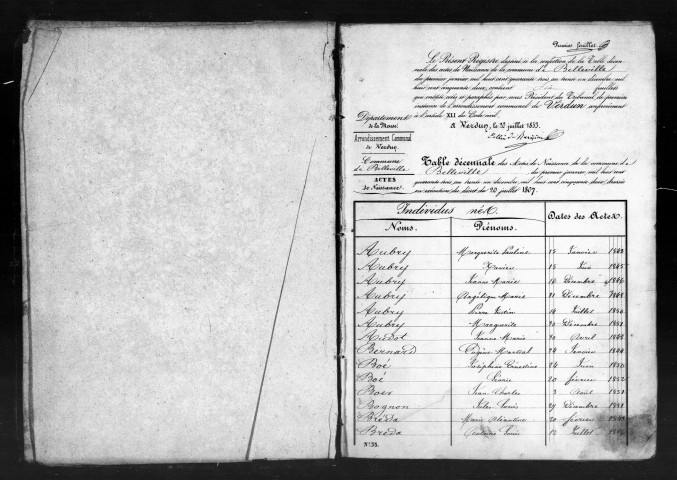 Premier feuillet
Le Présent Registre destiné à la confection de la Table décen-
nale des actes de Naissance de la commune de Belleville
du premier janvier mil huit cent quarante trois au trente un décembre mil
huit cent cinquante deux, contient feuillets
qui ont été cotés et paraphés par nous Président du Tribunal de première
instance de l'arrondissement communal de Verdun, conformément
à l'article XLI du Code civil.
à Verdun, le 20 juillet 1853.
Département
de la Meuse.
Arrondissement Communal
de Verdun.
Commune
de Belleville
ACTES
de Naissance.
Table décennale des Actes de Naissance de la commune de
Belleville du premier janvier, mil huit cent
quarante trois au trente un décembre, mil huit cent cinquante deux, dressée
en exécution du décret du 20 juillet 1807.
Individus nés. Dates des Actes.
Noms. Prénoms.
Aubry Marguerite Pauline 15 Janvier
Aubry Xavier 15 Juin 1845
Aubry Jeanne Marie Décembre 1846
Aubry Angélique Marie 31 Décembre 1848
Aubry Pierre Justin Juillet 1850
Aubry Marguerite Décembre 1851
Audot Jeanne Marie 30 Avril
Bernard Eugène Martial Janvier
Boé Joséphine Ernestine 24 Juin 1850
Boé 20 février 1852
Boer Jean Charles 3 Août 1851
Bognon Jules Louis 27 Décembre 1851
Bréda Marie 20 février
Bréda Louis 12 Juillet
N° 35.